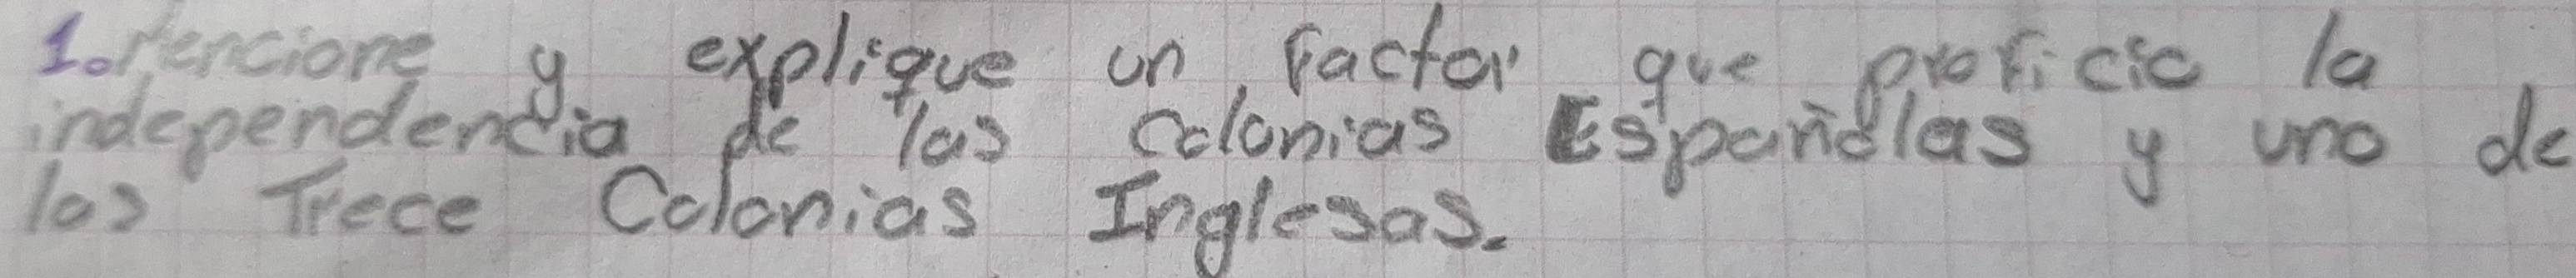 1. Mencione y explique un factor que proficio la
independencia de las colonias Españolas y uno de
las Trece Colonias Inglesas.